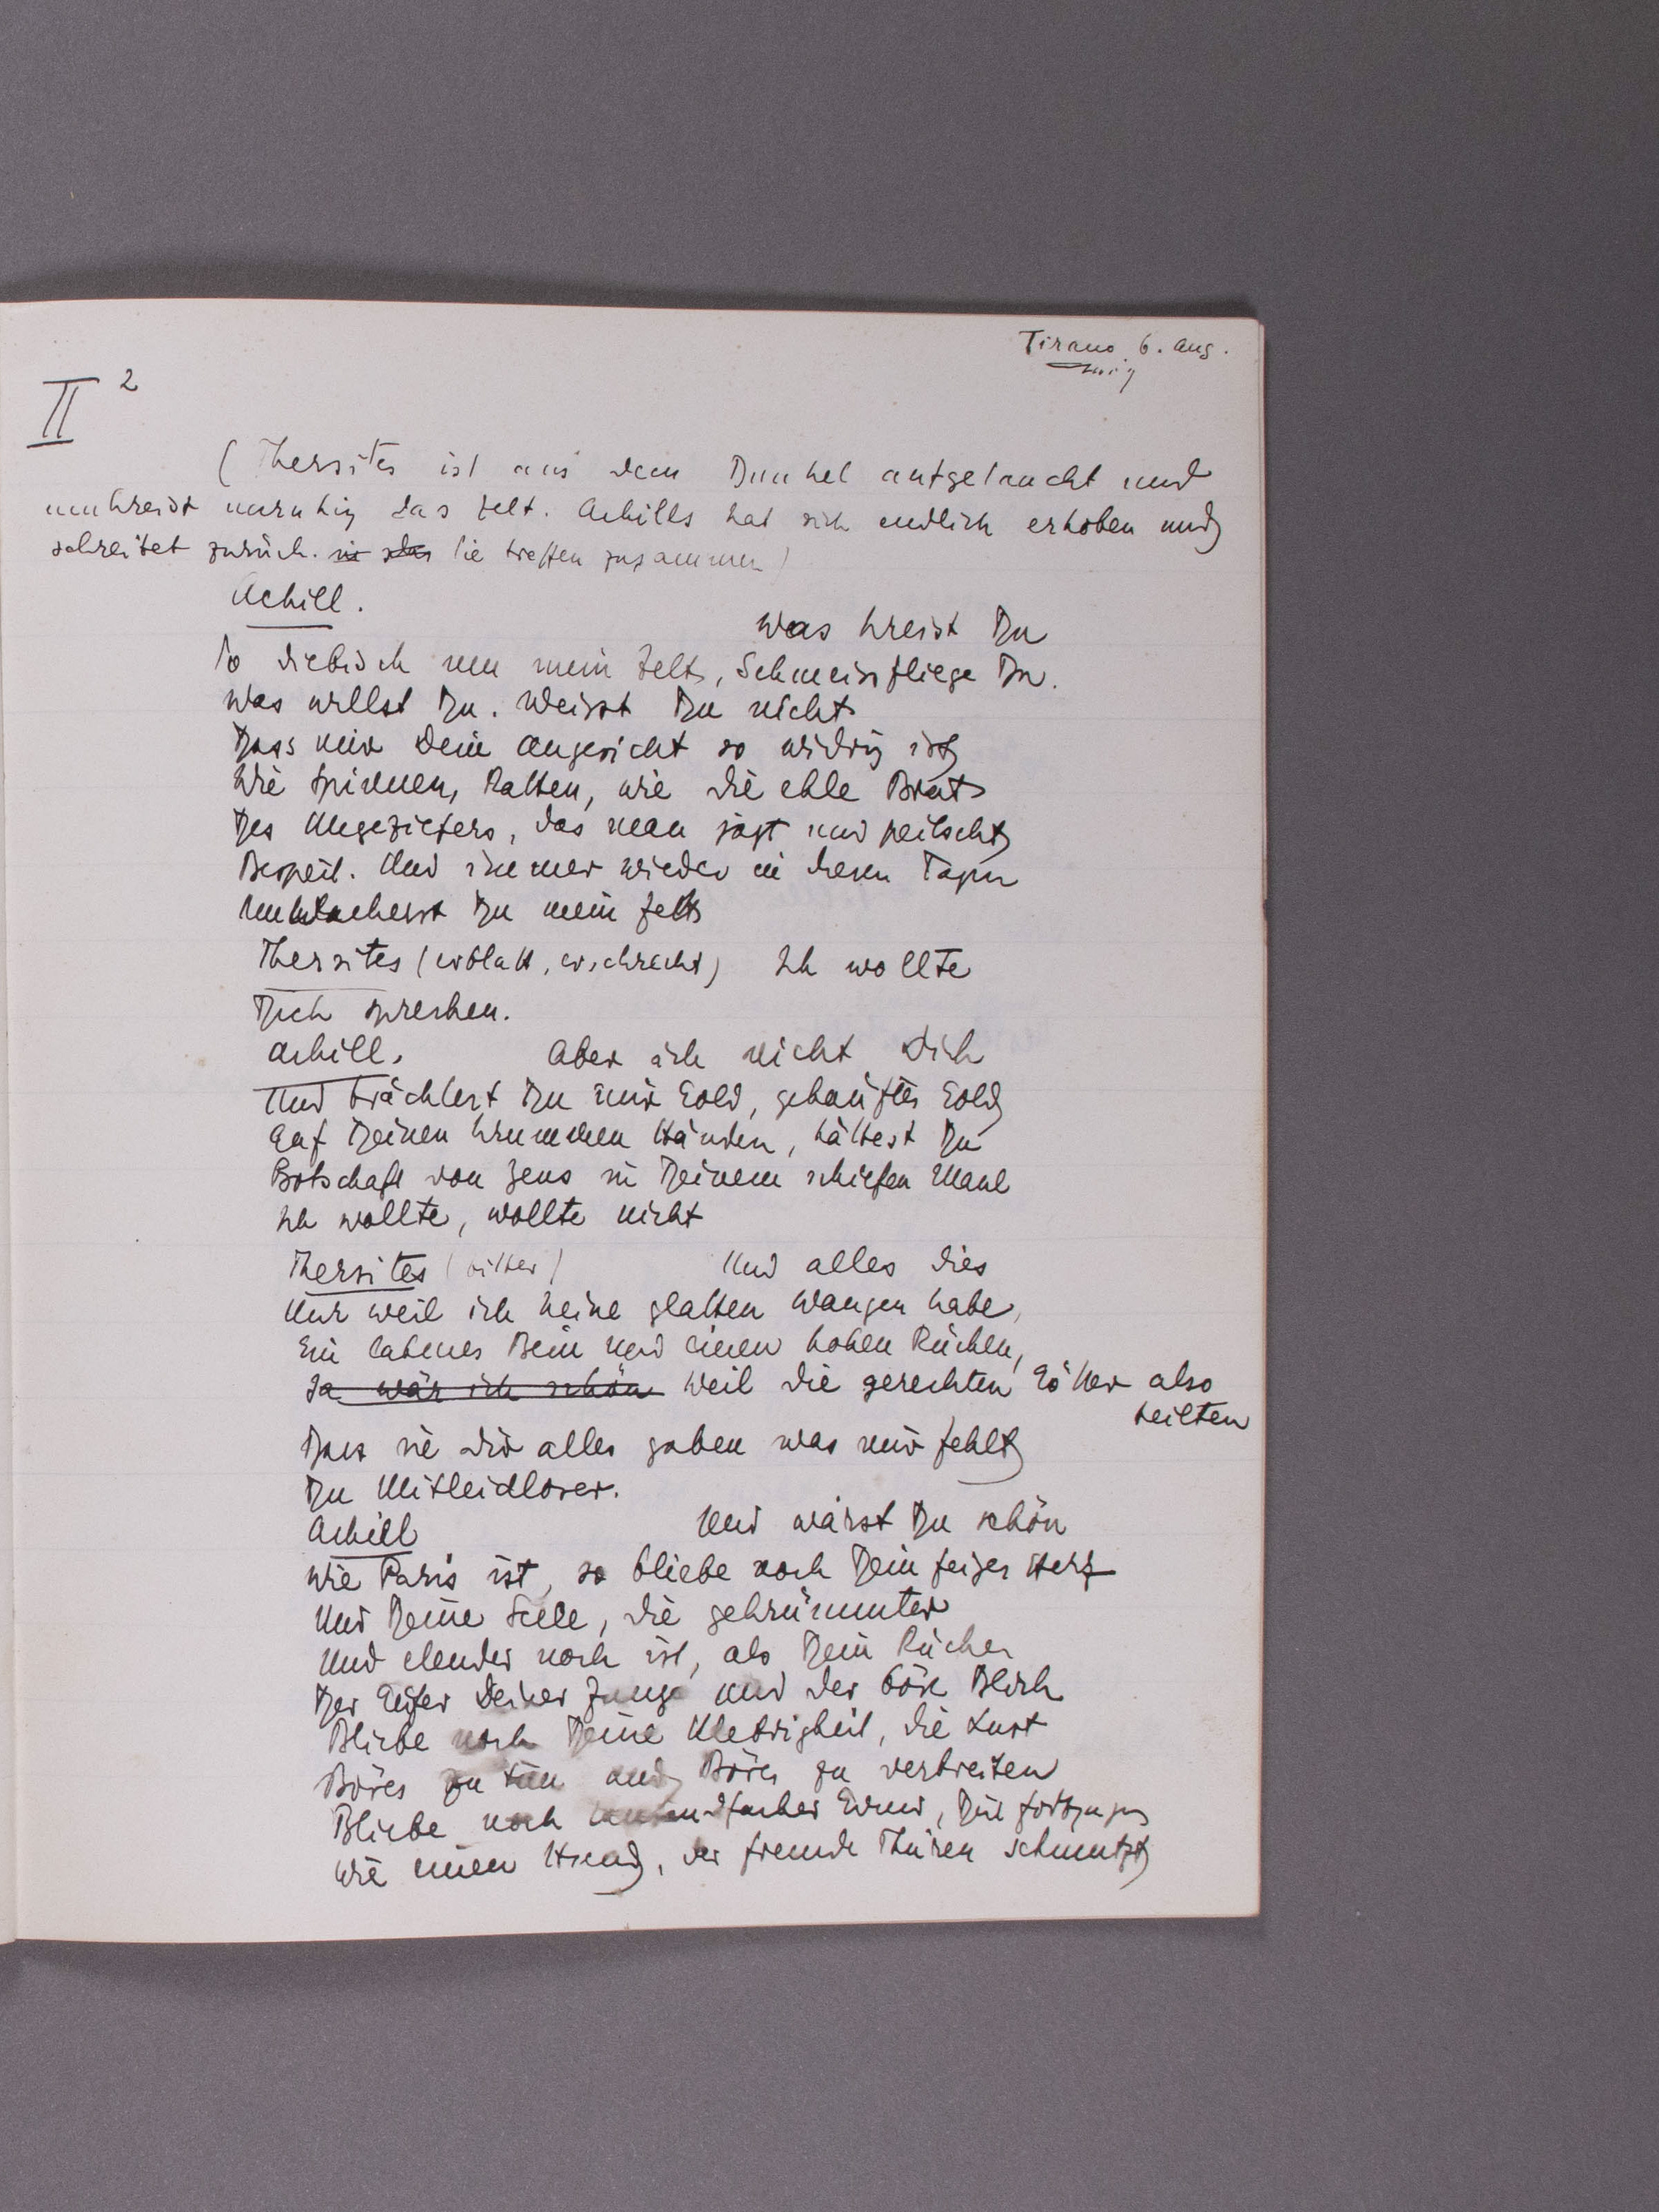 Tirano. 6. Aug.
II 2
(Thersites ist aus dem Dunkel aufgetaucht und
umkreist unruhig das Zelt. Achills hat sich endlich erhoben und
schreitet zurück. sie Sie treffen zusammen)
Achill.
Was kreist Du
So diebisch um mein Zelt, Schmeissfliege Du.
Was willst Du. Weisst Du nicht
Dass mir Dein Angesicht so widrig ist
Wie Spinnen, Ratten, wie die ekle Brut
Des Ungeziefers, das man jagt und peitscht
Bespeit. Und immer wieder in diesen Tagen
Mein Zelt Du
Thersites (erblasst, erschreckt) Ich wollte
Dich sprechen.
Achill. Aber ich nicht Dich
Und brächtest Du mir Gold, gehäuftes Gold
Auf Deinen krummen Händen, hättest Du
Botschaft von Zeus in Deinem schiefen Maul
Ich wollte, wollte nicht
Thersites (bitter) Und alles dies
Nur weil ich keine glatten Wangen habe,
Ein lahmes Bein und einen hohen Rücken,
Ja wär ich schön Weil die gerechten Götter also
teilten
Dass sie Dir alles gaben was mir fehlt
Du Mitleidloser.
Achill Und wärst Du schön
Wie Paris ist, so bliebe noch Dein feiges Herz
Und Deine Seele, die gekrümmter
Und elender noch ist, als Dein Rücken
Der Geifer Deiner Zunge und der böse Blick
Bliebe noch Deine Klebrigkeit, die Lust
Böses zu tun und Böses zu verbreiten
Bliebe noch tausendfacher Grund, Dich fortzujagen
Wie einen Hund, der fremde Thüren schmutzt